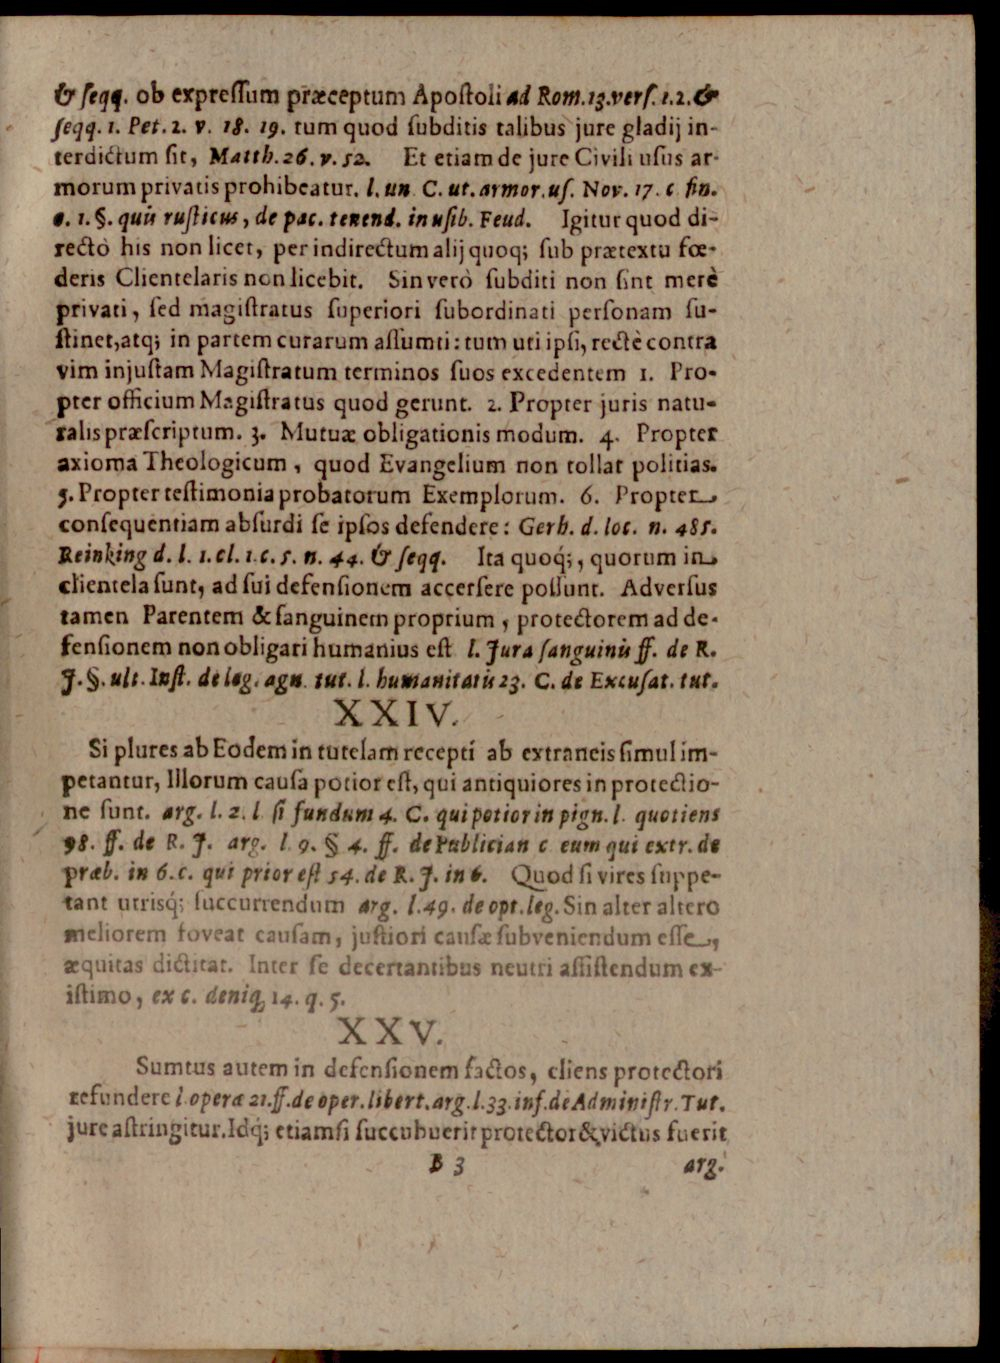 & ſeqq. ob expreſſum præceptum Apoſtoli ad Rom.13.verſ.1.2.&
ſeqq. 1. Pet. 2. v. 18. 19. tum quod ſubditis talibus jure gladij in-
terdictum ſit, Matth. 26. v. 52. Et etiam de jure Civili uſus ar-
morum privatis prohibeatur. l. un. C. ut. armor. uſ. Nov. 17. c fin.
1. §. quis ruſticus, de pac. tenend. in uſib. Feud. Igitur quod di-
rectò his non licet, per indirectum alij quoq; ſub prætextu fœ-
deris Clientelaris non licebit. Sin verò ſubditi non ſint merè
privati, ſed magiſtratus ſuperiori ſubordinati perſonam ſu-
ſtinet, atq; in partem curarum aſſumti: tum uti ipſi, rectè contra
vim injuſtam Magiſtratum terminos ſuos excedentem 1. Pro-
pter officium Magiſtratus quod gerunt. 2. Propter juris natu-
ralis præſcriptum. 3. Mutuæ obligationis modum. 4. Propter
axioma Theologicum, quod Evangelium non tollat politias.
5. Propter teſtimonia probatorum Exemplorum. 6. Propter
conſequentiam abſurdi ſe ipſos defendere: Gerh. d. loc. n. 485.
Reinking d. l. 1. cl. 1. c. 5. n. 44. & ſeqq. Ita quoq́;, quorum in
clientela ſunt, ad ſui defenſionem accerſere poſſunt. Adverſus
tamen Parentem & ſanguinem proprium, protectorem ad de-
fenſionem non obligari humanius eſt l. Jura ſanguinis ff. de R.
J. §. ult. Inſt. de leg. agn. tut. l. humanitatis 23. C. de Excuſat. tut.
XXIV.
Si plures ab Eodem in tutelam recepti ab extraneis ſimul im-
petantur, Illorum cauſa potior eſt, qui antiquiores in protectio-
ne ſunt. arg. l. 2. l ſi fundum 4. C. qui potior in pign. l. quotiens
98. ff. de R. J. arg. l. 9. § 4. ff. de Publician c eum qui extr. de
præb. in 6. c. qui prior eſt 54. de R. J. in 6. Quod ſi vires ſuppe-
tant utrisq́; ſuccurrendum arg. l. 49. de opt. leg. Sin alter altero
meliorem foveat cauſam, juſtiori cauſæ ſubveniendum eſſe,
æquitas dictitat. Inter ſe decertantibus neutri aſſiſtendum ex-
iſtimo, ex c. deniq; 14. q. 5.
XXV.
Sumtus autem in defenſionem factos, cliens protectori
refundere l operæ 21. ff. de oper. libert. arg. l. 33. inf. de Adminiſtr. Tut.
jure aſtringitur. Idq́; etiamſi ſuccubuerit protector & victus fuerit
B 3
arg.